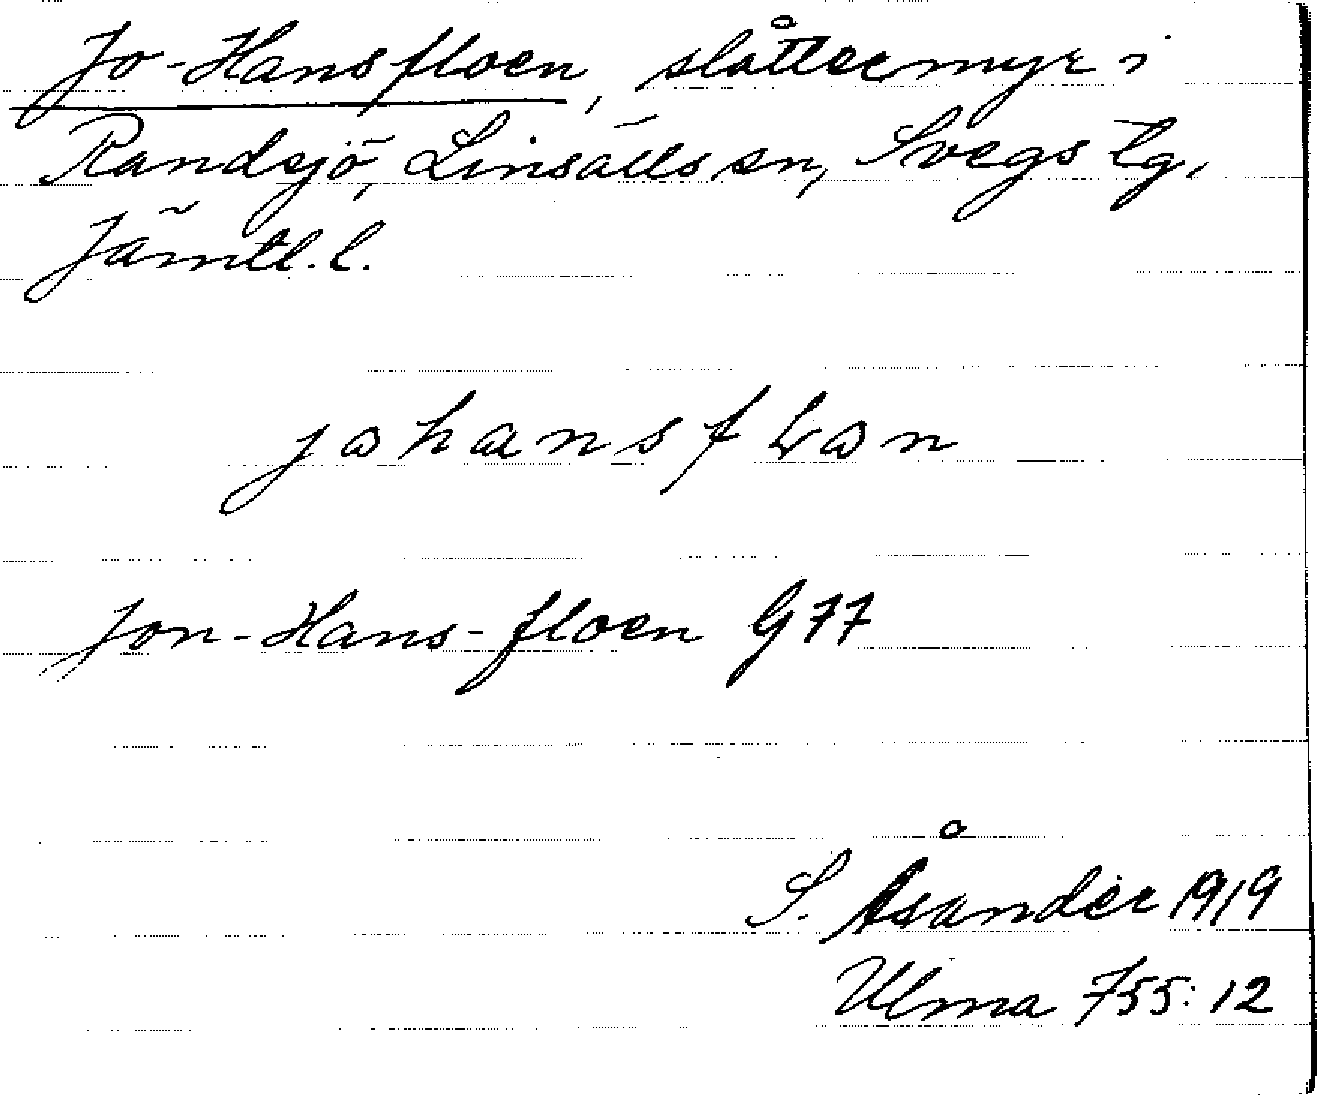 Jo-Hansfloen, slåttermyr i
Randsjö, Linsälls sn, Svegs tg,
Jämtl. l.
johansf
Jon-Hans-floen G 77
S. Åsander 1919
Ulma 755:12